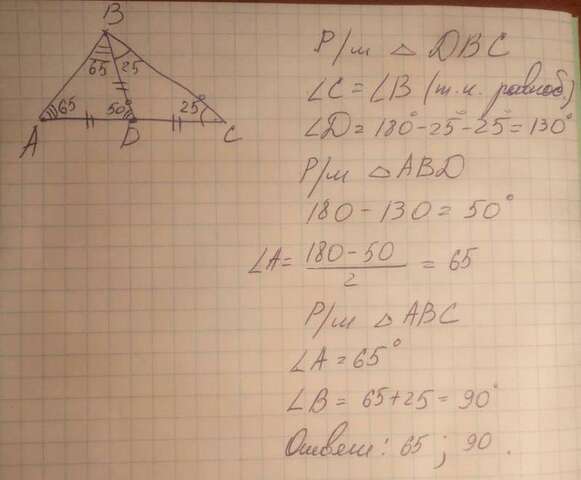 B
65 25
65 50° 25°
A D C
Р/м △ DBC
∠C = ∠B (т.к. равноб.)
∠D = 180° - 25° - 25° = 130°
Р/м △ ABD
180 - 130 = 50°
∠A = 180 - 50 / 2 = 65
Р/м △ ABC
∠A = 65°
∠B = 65 + 25 = 90°
Ответ: 65 ; 90 .